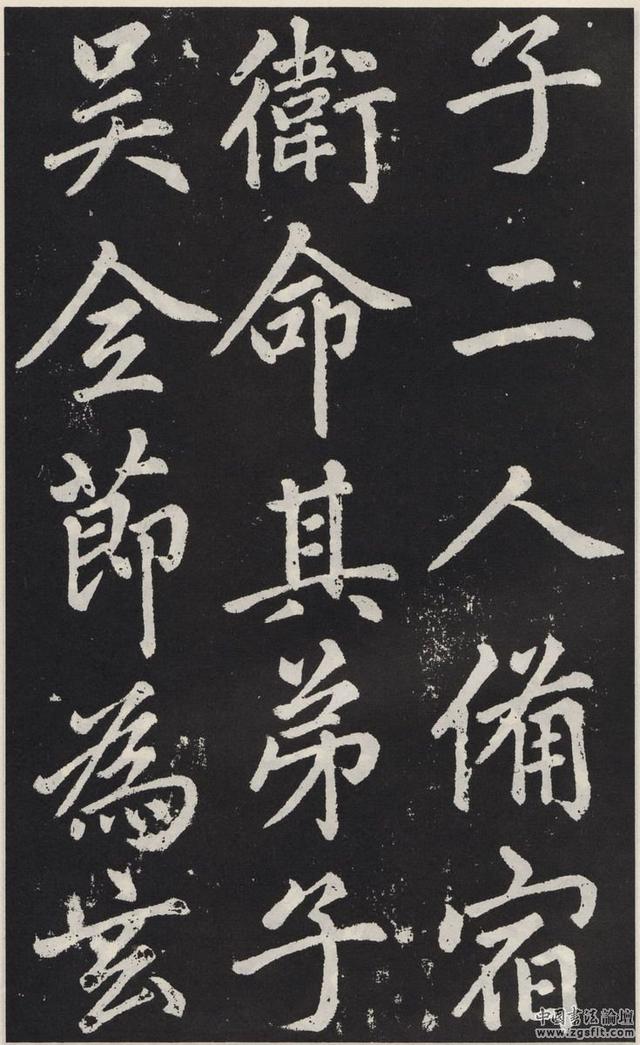 子二人備宿
衛命其弟子
吴全節為玄
中国書法論壇
www.zgsflt.com